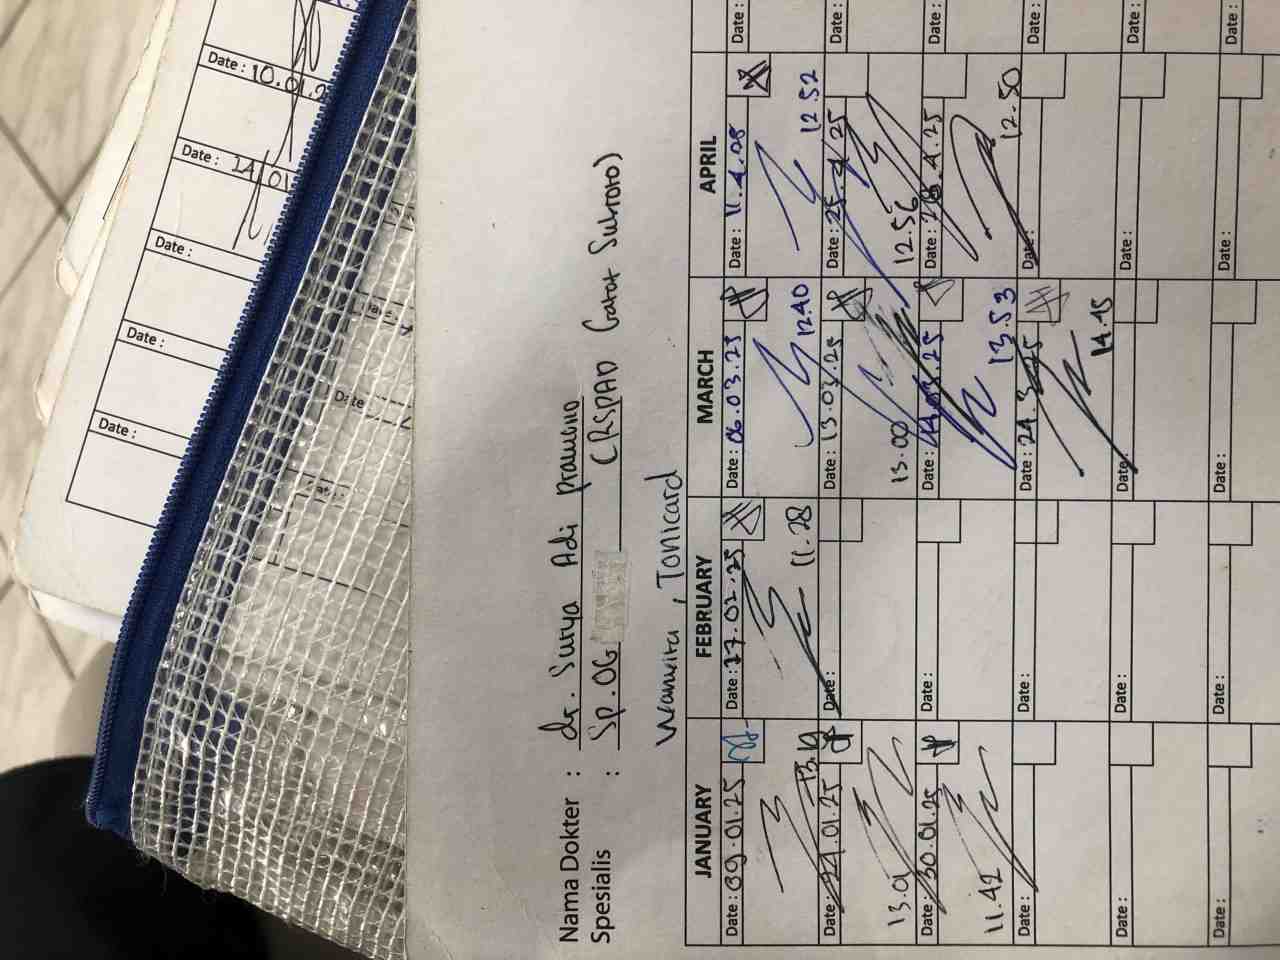 Nama Dokter : dr. Surya Adi Pramono
Spesialis : Sp.OG (RSPAD Gatot Subroto)
, Tonicard
JANUARY FEBRUARY MARCH APRIL
Date : 09.01.25 Date : 27.02.25 Date : 06.03.25 Date : 11.4.25 Date :
13.19 11.28 12.40 12.52
Date : 21.01.25 Date : Date : 13.03.25 Date : 25.4.25 Date :
13.01 13.00 12.56
Date : 30.01.25 Date : Date : 14.03.25 Date : 28.4.25 Date :
11.42 13.53 12.50
Date : Date : Date : 24.3.25 Date : Date :
14.15
Date : Date : Date : Date : Date :
Date : Date : Date : Date : Date :
Date : 10.01.2
Date : 24/01
Date :
Date :
Date :
Date